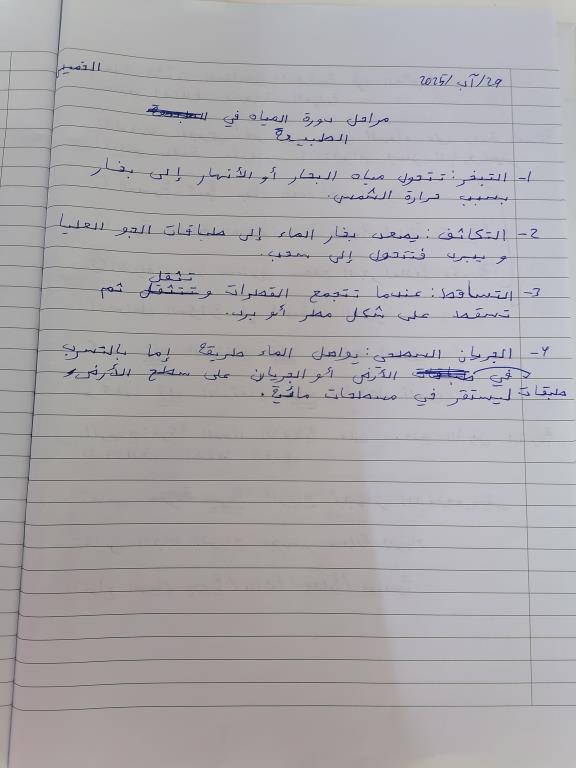 الخميس
29/آب/2025
مراحل دورة المياه في
الطبيعة
1- التبخر: تتحول مياه البحار أو الأنهار إلى بخار
بسبب حرارة الشمس.
2- التكاثف: يصعد بخار الماء إلى طبقات الجو العليا
و يبرد فتتحول إلى سحب.
3- التساقط: عندما تتجمع القطرات و تثقل ثم
تسقط على شكل مطر أو برد.
4- الجريان السطحي: يواصل الماء طريقة إما بالتسرب
في طبقات الأرض أو الجريان على سطح الأرض،
ليستقر في مسطحات مائية.